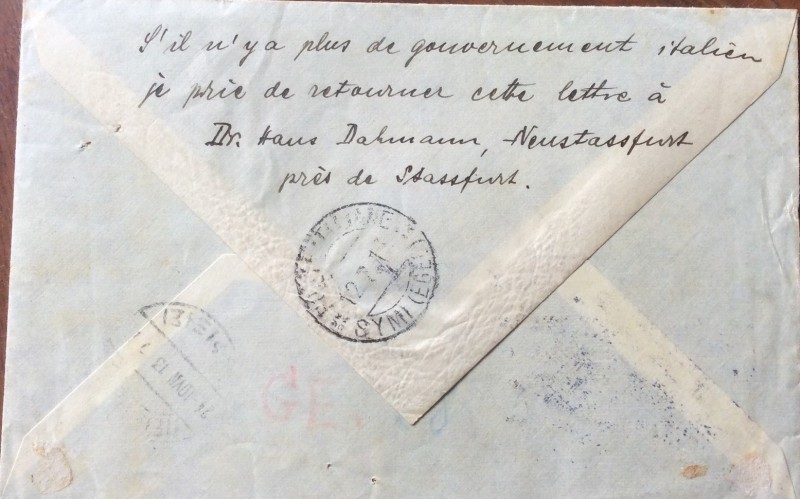 S'il n'y a plus de gouvernement italien
je prie de retourner cette lettre à
Dr. Hans Dahmann, Neustassfurt
près de Stassfurt.
SYMI (EGEO)
GE.